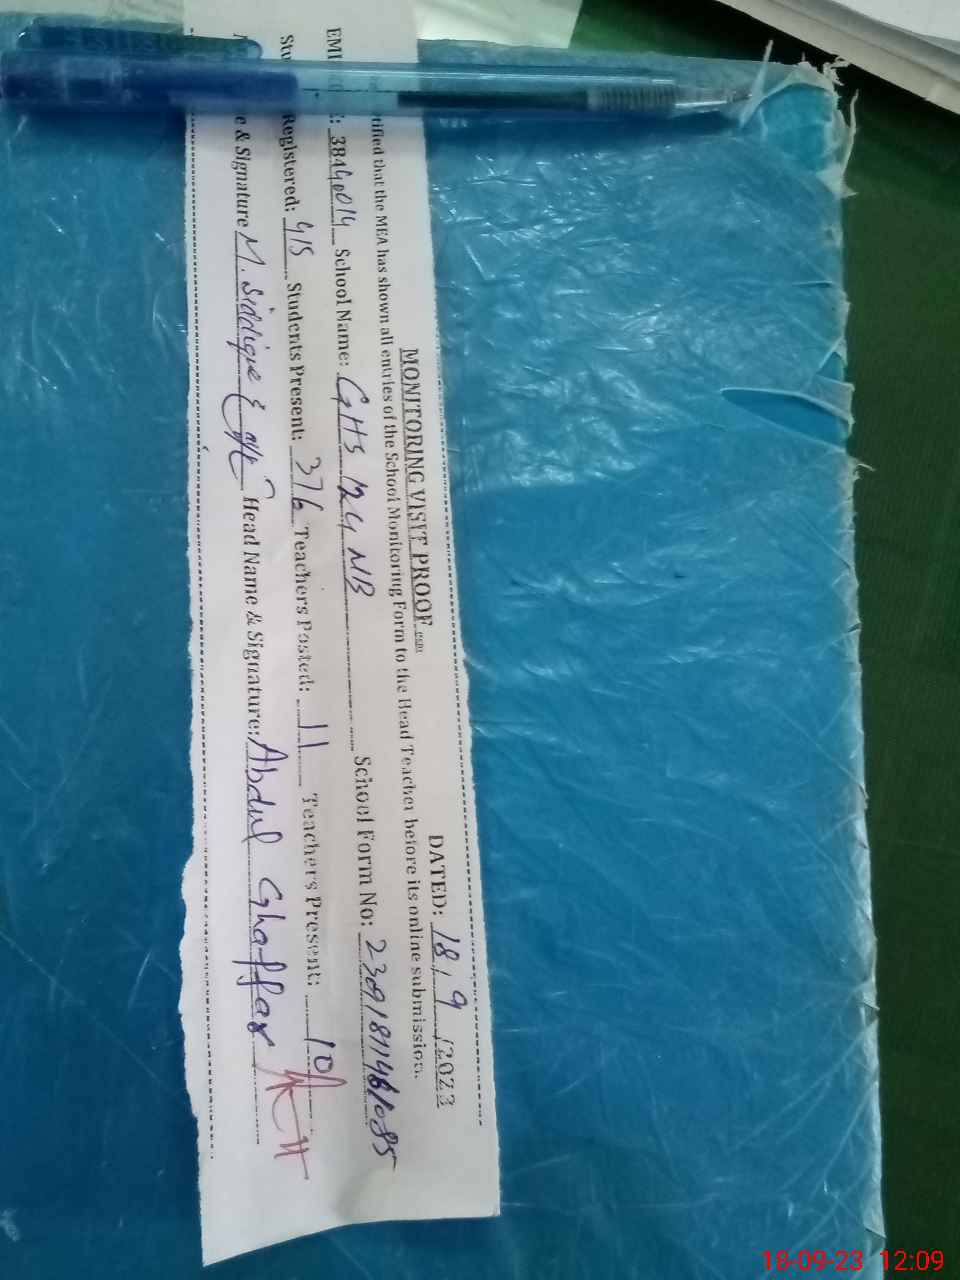 MONITORING VISIT PROOF
DATED: 18, 9 /2023
tified that the MEA has shown all entries of the School Monitoring Form to the Head Teacher before its online submission.
EMI : 38440014 School Name: GHS 124 NB School Form No:
Stu Registered: 415 Students Present: 376 Teachers Posted: 11 Teachers Present: 10
e & Signature M. Siddique Head Name & Signature: Abdul Ghaffar
18-09-23 12:09